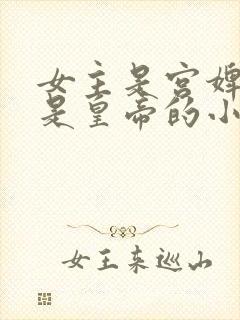 女主是宫婢
是皇帝的小
女王来巡山